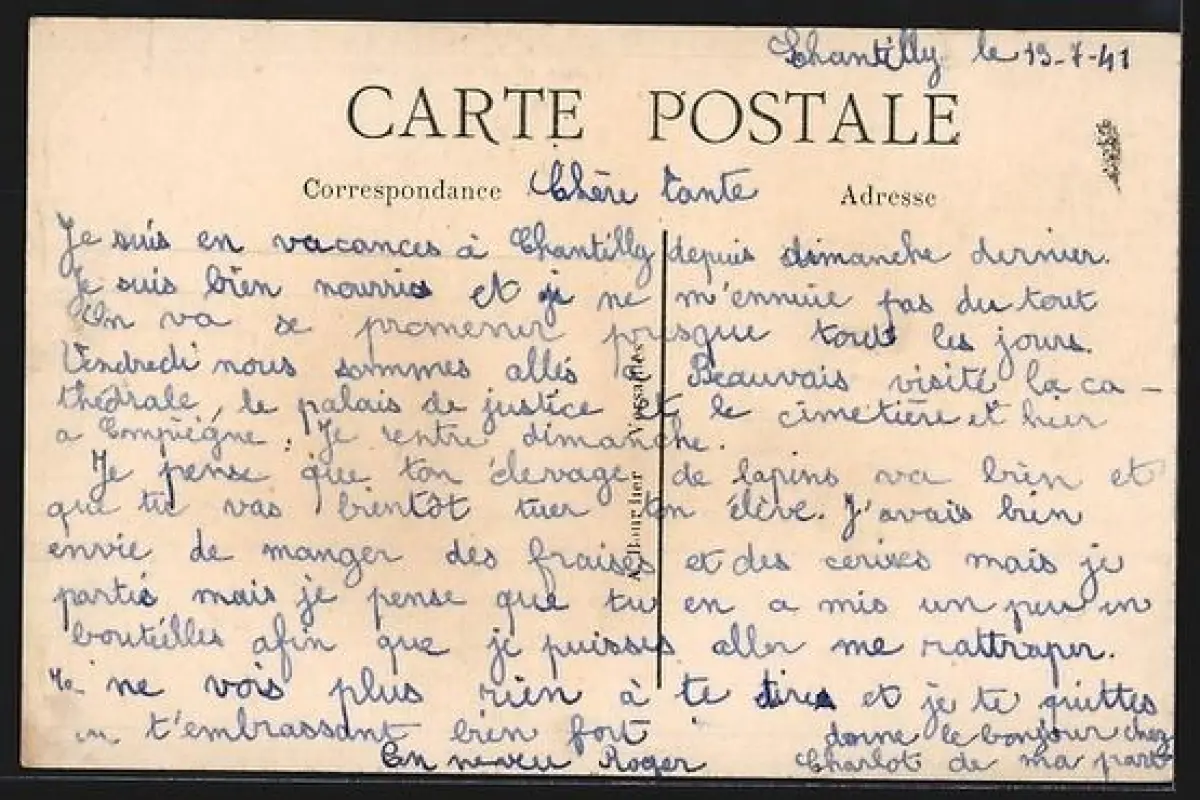 Chantilly le 13-7-41
CARTE POSTALE
Correspondance Chère tante Adresse
Je suis en vacances à Chantilly depuis dimanche dernier.
Je suis bien nourris et je ne m'ennuie pas du tout
On va se promener presque tout les jours.
Vendredi nous sommes allés à Beauvais visité la ca-
thédrale, le palais de justice et le cimetière et hier
a Compiègne. Je rentre dimanche.
Je pense que ton élevage de lapins va bien et
que tu vas bientôt tuer ton élève. J'avais bien
envie de manger des fraises et des cerises mais je
partis mais je pense que tu en a mis un peu en
bouteilles afin que je puisses aller me rattraper.
Je ne vois plus rien à te dires et je te quittes
en t'embrassant bien fort
donne le bonjour chez
Ton neveu Roger
Charlot de ma part